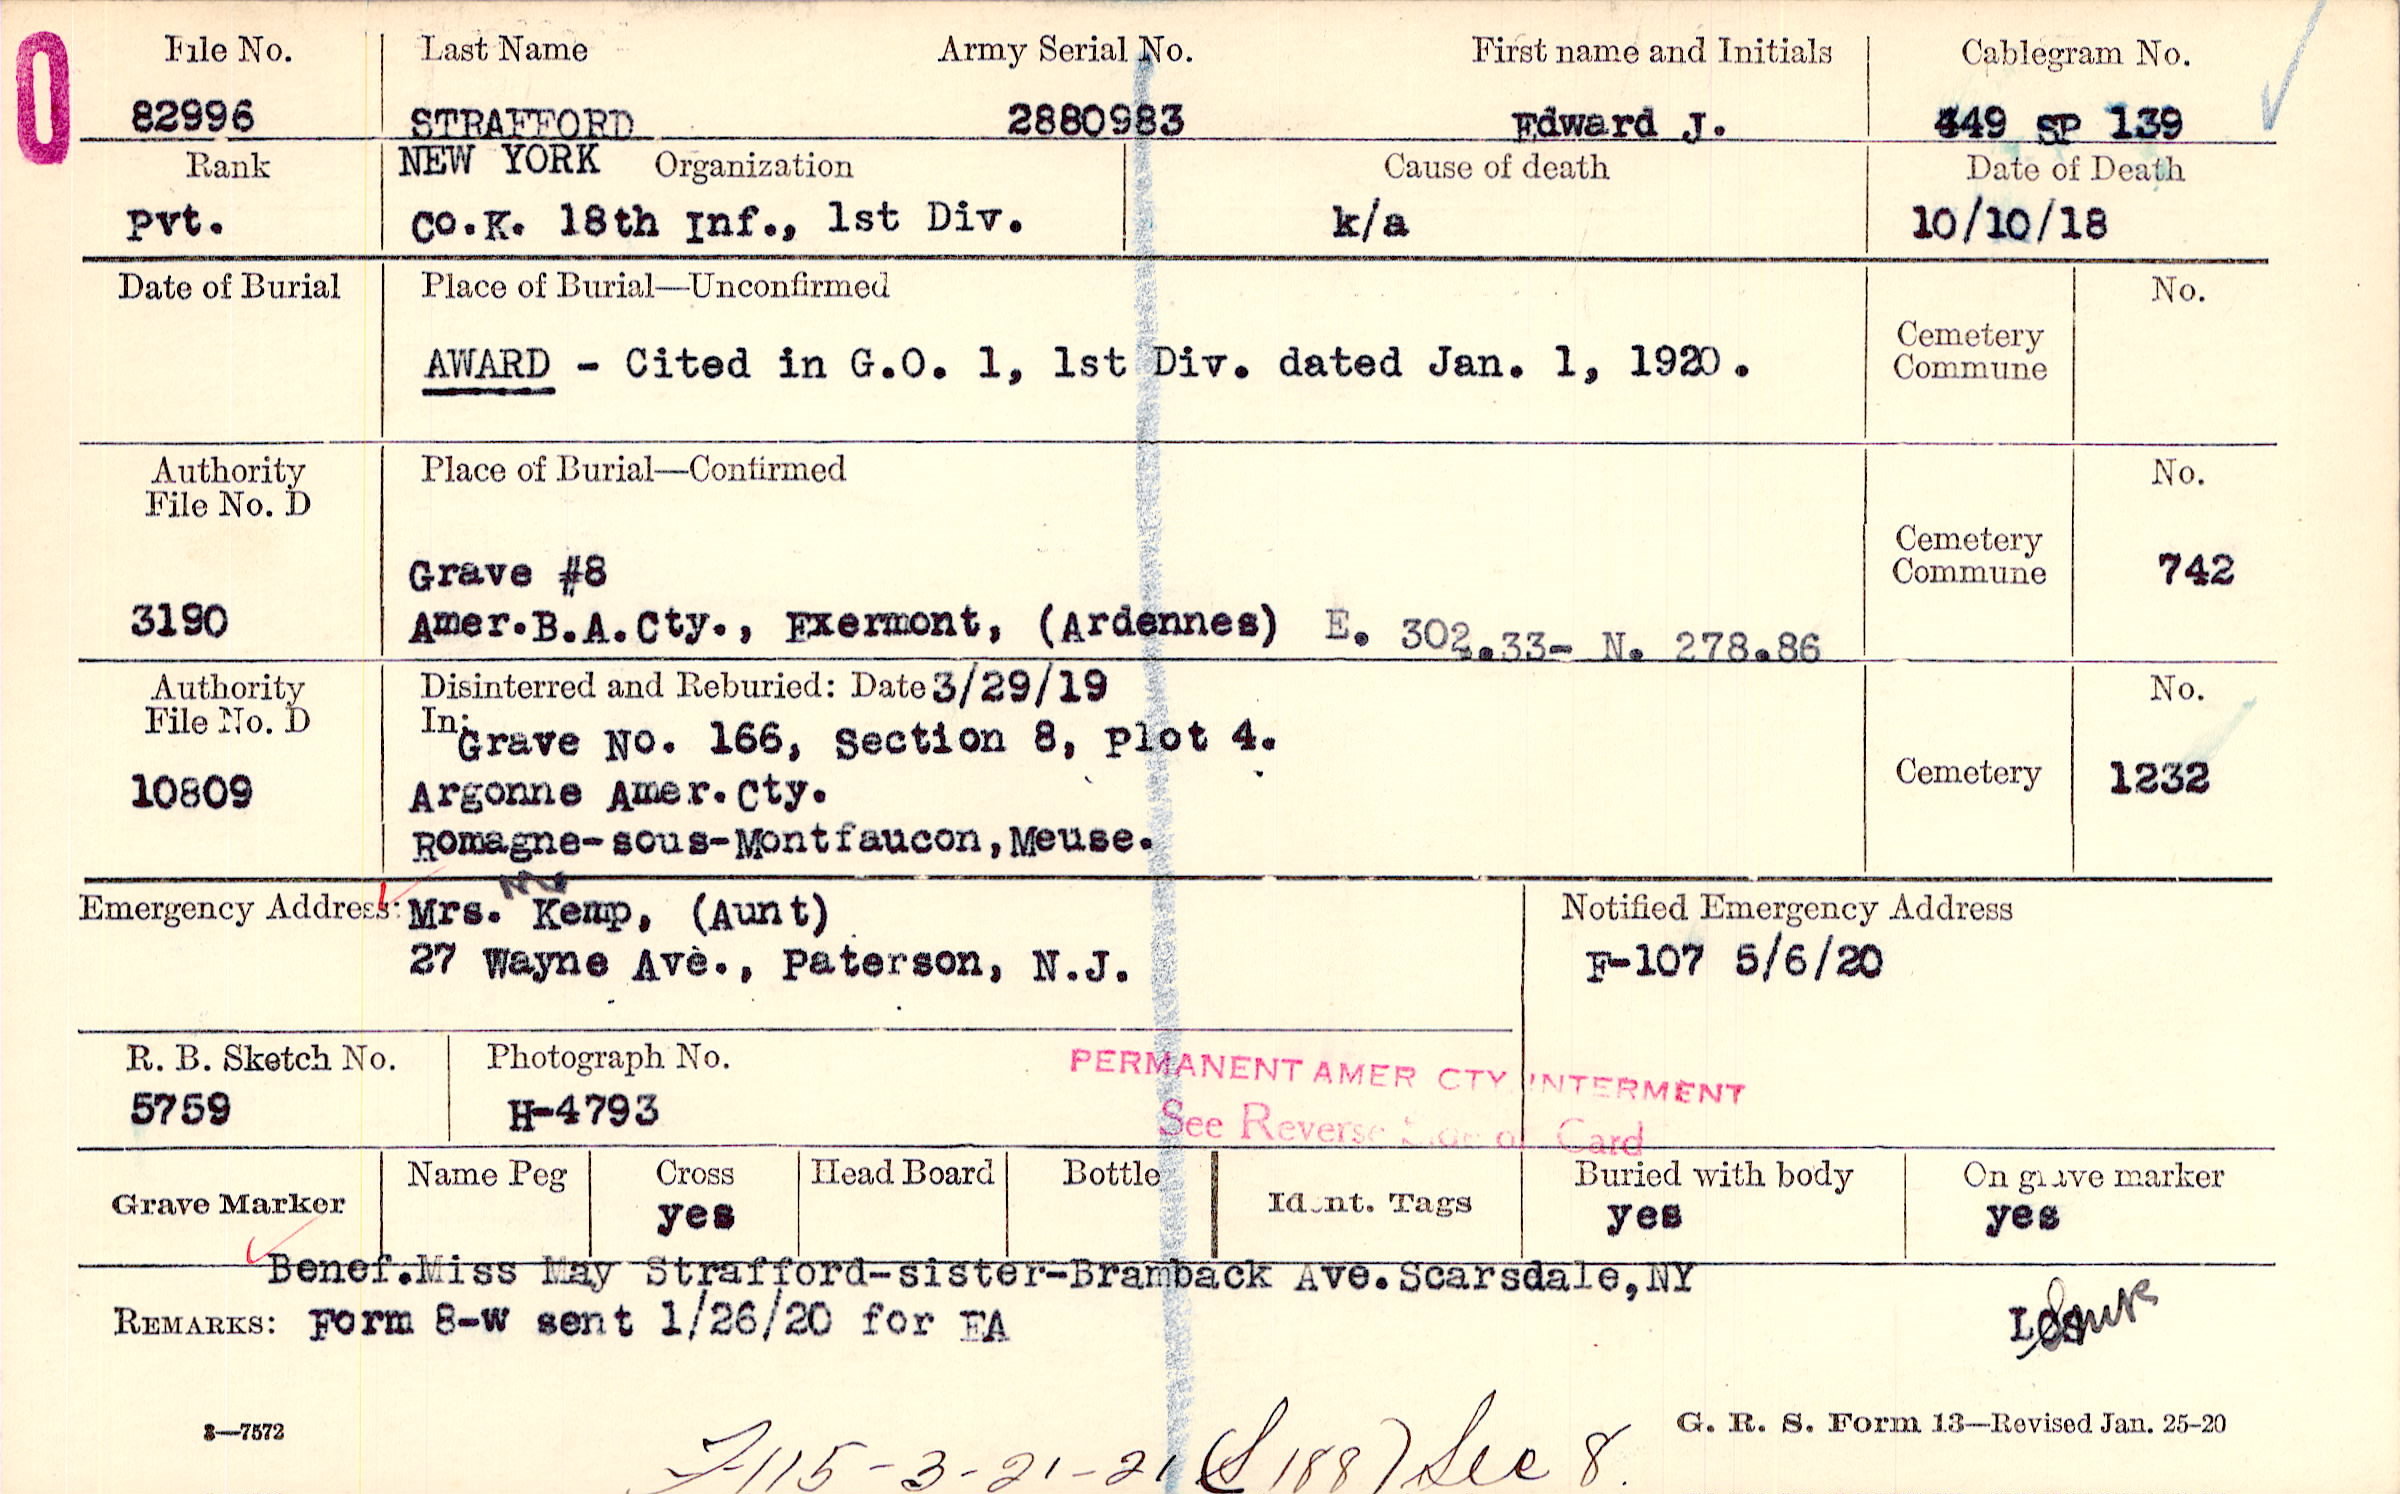 File No. Last Name Army Serial No. First name and Initials Cablegram No.
82996 STRAFFORD 2880983 Edward J. 449 SP 139
Rank NEW YORK Organization Cause of death Date of Death
Pvt. Co.K. 18th Inf., 1st Div. k/a 10/10/18
Date of Burial Place of Burial—Unconfirmed No.
Cemetery
AWARD - Cited in G.O. 1, 1st Div. dated Jan. 1, 1920.
Commune
Authority Place of Burial—Confirmed No.
File No. D
Cemetery
Grave #8 Commune 742
3190 Amer.B.A.Cty., Exermont, (Ardennes) E. 302.33- N. 278.86
Authority Disinterred and Reburied: Date 3/29/19 No.
File No. D In: Grave No. 166, Section 8, Plot 4.
10809 Argonne Amer.Cty. Cemetery 1232
Romagne-sous-Montfaucon,Meuse.
Emergency Address: Mrs. Kemp, (Aunt) Notified Emergency Address
27 Wayne Ave., Paterson, N.J. F-107 5/6/20
R. B. Sketch No. Photograph No.
PERMANENT AMER CTY INTERMENT
5759 H-4793
See Reverse Side of Card
Name Peg Cross Head Board Bottle Buried with body On grave marker
Grave Marker yes Ident. Tags yes yes
Benef.Miss May Strafford-sister-Bramback Ave.Scarsdale,NY
REMARKS: Form 8-W sent 1/26/20 for EA
3—7572 G. R. S. Form 13—Revised Jan. 25-20
115-3-21-21 (S 188) Sec 8.